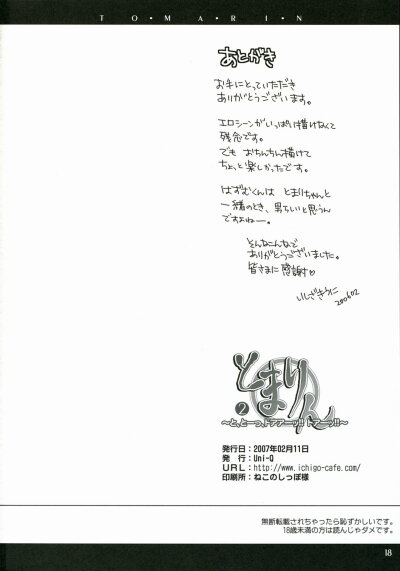 T・O・M・A・R・I・N
あとがき
お手にとっていただき
ありがとうございます。
エロシーンがいっぱい描けなくて
残念です。
でも おちんちん描けて
ちょっと楽しかったです。
はずむくんは とまりちゃんと
一緒のとき、男らしいと思うん
ですよねー。
そんなこんなで
ありがとうございました。
皆さまに感謝♡
いしざきうに
200602
とまりん
2
〜と、とーっ、ドアアーッ!! ドアーッ!!〜
発行日：2007年02月11日
発　行：Uni-Q
URL：http://www.ichigo-cafe.com/
印刷所：ねこのしっぽ様
無断転載されちゃったら恥ずかしいです。
18歳未満の方は読んじゃダメです。
18